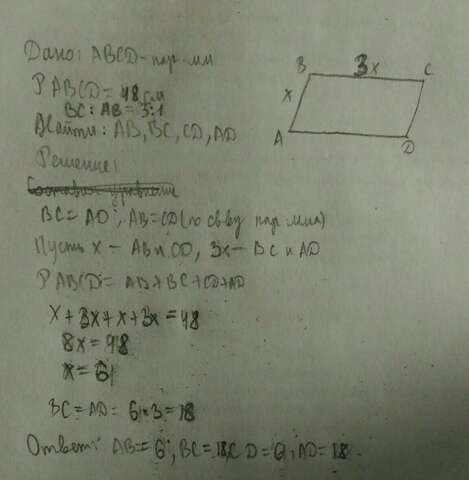 Дано: ABCD - пар-мм
P ABCD = 48 см
BC : AB = 3:1
Найти: AB, BC, CD, AD
Решение:
Составим уравнение
BC = AD, AB = CD (по св-ву пар-мма)
Пусть x - AB и CD, 3x - BC и AD
P ABCD = AB + BC + CD + AD
x + 3x + x + 3x = 48
8x = 48
x = 6
BC = AD = 6 · 3 = 18
Ответ: AB = 6, BC = 18, CD = 6, AD = 18.
B 3x C
x
A D